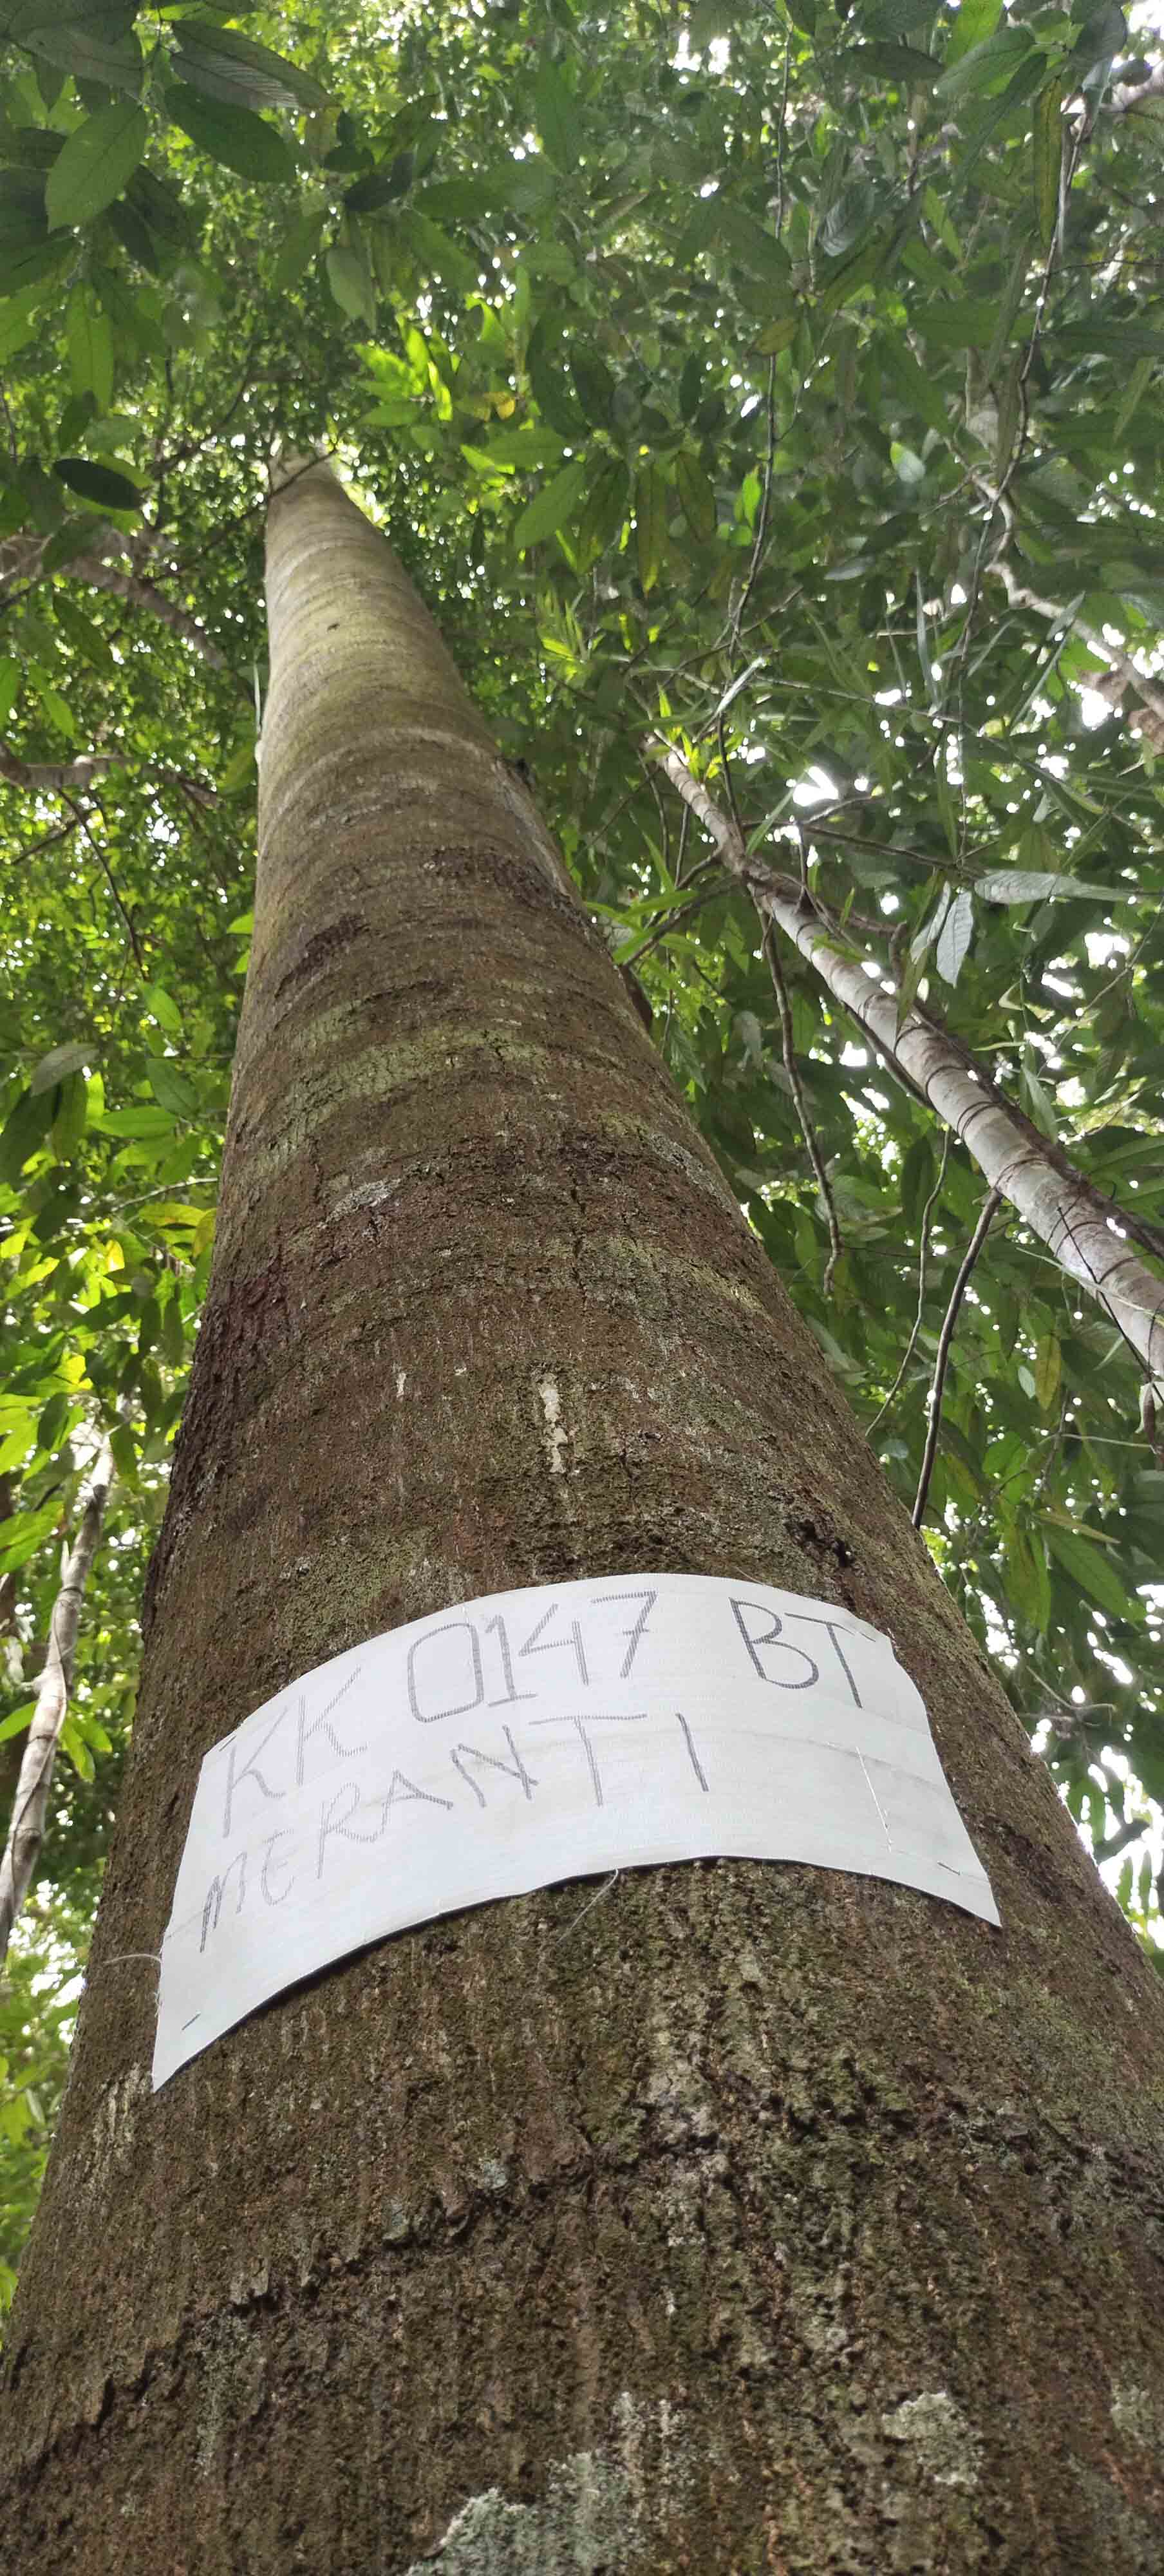 KK 0147 BT
MERANTI